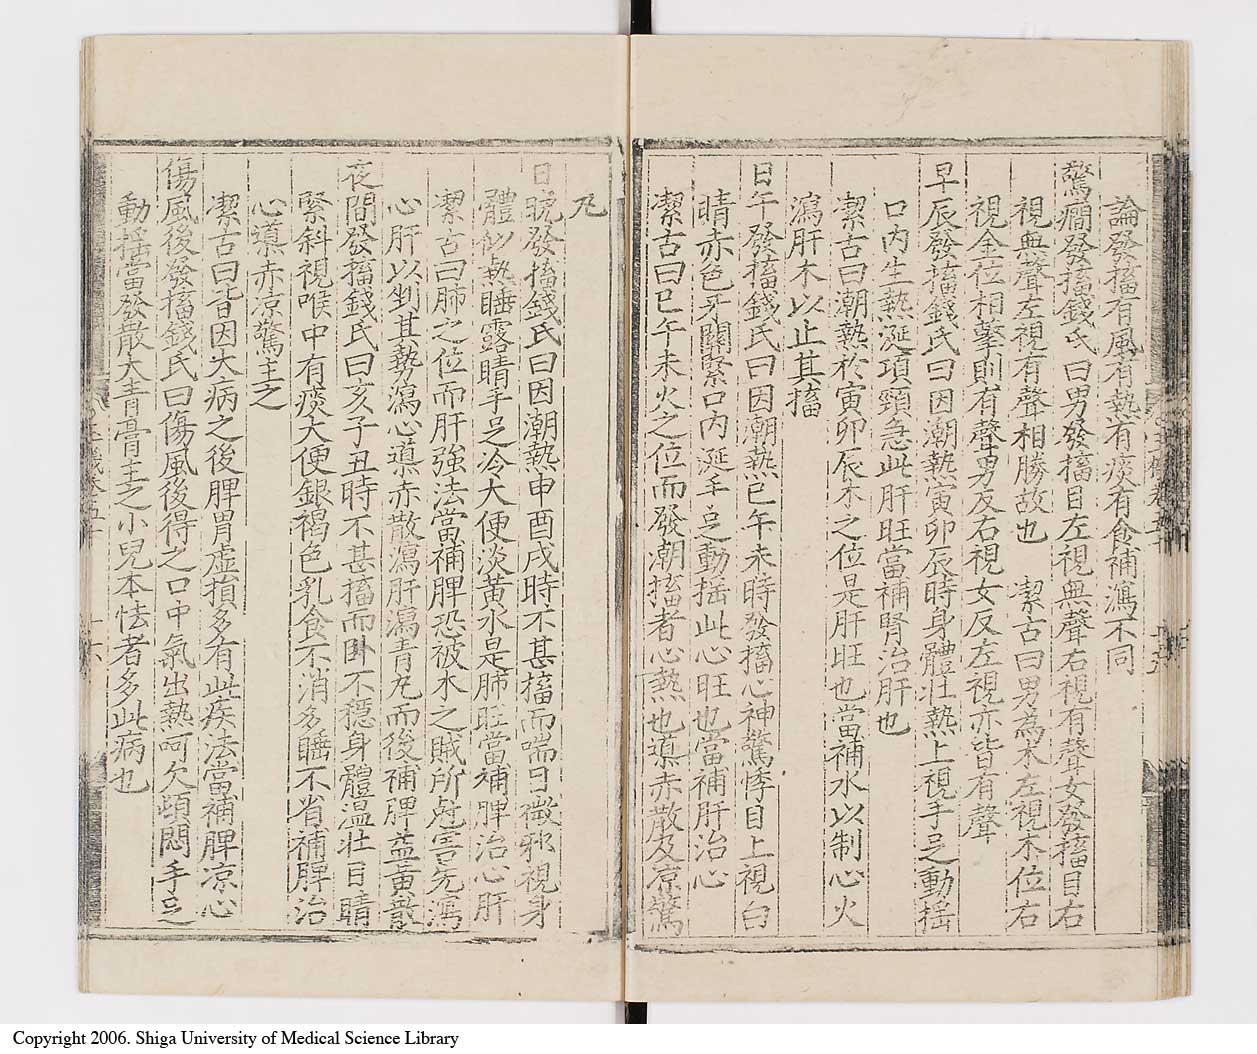 論發搐有風有熱有痰有食補瀉不同
驚癇發搐錢氏曰男發搐目左視無聲右視有聲女發搐目右
視無聲左視有聲相勝故也　潔古曰男為木左視木位右
視金位相擊則有聲男反右視女反左視亦皆有聲
早辰發搐錢氏曰因潮熱寅卯辰時身體壯熱上視手足動搖
口內生熱涎項頸急此肝旺當補腎治肝也
潔古曰潮熱於寅卯辰木之位是肝旺也當補水以制心火
瀉肝木以止其搐
日午發搐錢氏曰因潮熱巳午未時發搐心神驚悸目上視白
睛赤色牙關緊口內涎手足動搖此心旺也當補肝治心
潔古曰巳午未火之位而發潮搐者心熱也導赤散及凉驚
丸
日晚發搐錢氏曰因潮熱申酉戌時不甚搐而喘目微邪視身
體似熱睡露睛手足冷大便淡黃水是肺旺當補脾治心肝
潔古曰肺之位而肝強法當補脾恐被木之賊所尅害先瀉
心肝以剉其勢瀉心導赤散瀉肝瀉青丸而後補脾益黃散
夜間發搐錢氏曰亥子丑時不甚搐而卧不穩身體溫壯目睛
緊斜視喉中有痰大便銀褐色乳食不消多睡不省補脾治
心導赤凉驚主之
潔古曰皆因大病之後脾胃虛損多有此疾法當補脾凉心
傷風後發搐錢氏曰傷風後得之口中氣出熱呵欠頓悶手足
動搖當發散大青膏主之小兒本怯者多此病也
Copyright 2006. Shiga University of Medical Science Library